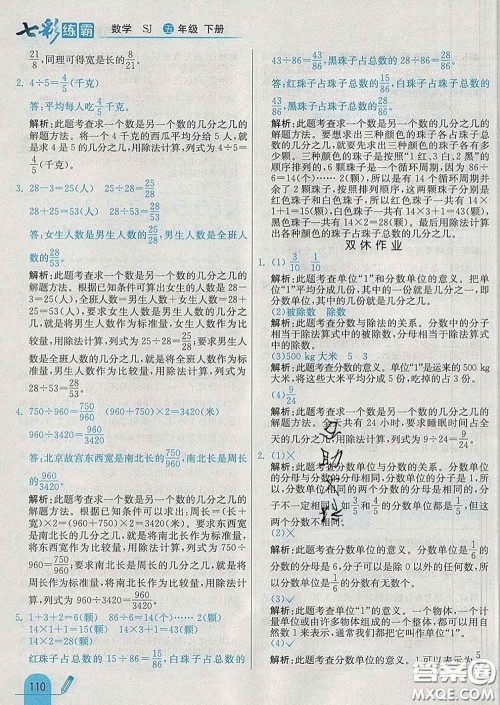 七彩练霸 数学 SJ 五年级 下册
21/8,同理可得宽是长的8/21。
2. 4÷5=4/5(千克)
答:平均每人吃4/5千克。
解析:此题考查求一个数是另一个数的几分之几的
解题方法。将一个4千克的西瓜平均分给5人,
就是求4是5的几分之几,用除法计算,列式为4÷5=
4/5(千克)。
3. 28-3=25(人) 25÷28=25/28
28+25=53(人) 28÷53=28/53
答:女生人数是男生人数的25/28,男生人数是全班人
数的28/53。
解析:此题考查求一个数是另一个数的几分之几的
解题方法。根据已知条件可算出女生的人数是28-
3=25(人),全班人数=男生人数+女生人数=28+
25=53(人)。要求女生人数是男生人数的几分之
几,就是将男生人数作为标准量,女生人数作为比
较量,用除法计算,列式为25÷28=25/28。要求男生
人数是全班人数的几分之几,就是将全班人数作为
标准量,男生人数作为比较量,用除法计算,列式为
28÷53=28/53。
4. 750÷960=750/960 (960+750)×2=3420(米)
960÷3420=960/3420
答:北京故宫东西宽是南北长的750/960,南北长是周长
的960/3420。
解析:此题考查求一个数是另一个数的几分之几的
解题方法。根据已知条件可算出故宫的周长=(长+
宽)×2=(960+750)×2=3420(米)。要求东西宽
是南北长的几分之几,就是将南北长作为标准量,
东西宽作为比较量,用除法计算,列式为750÷960=
750/960。要求南北长是周长的几分之几,就是将周长作
为标准量,南北长作为比较量,用除法计算,列式为
960÷3420=960/3420。
5. 1+3+2=6(颗) 86÷6=14(个)……2(颗)
14×1+1=15(颗) 14×3+1=43(颗)
14×2=28(颗)
红珠子占总数的15÷86=15/86,白珠子占总数的
110
43÷86=43/86,黑珠子占总数的28÷86=28/86
答:红珠子占总数的15/86,白珠子占总数的
43/86,黑珠子占总数的28/86。
解析:此题考查求一个数是另一个数的几分之几的
解题方法。要想求出三种颜色的珠子各占总数的
几分之几,就要先求出三种颜色的珠子各有多
少颗。三种颜色的珠子是按照“1红、3白、2黑”的
顺序排列的,6颗珠子是一个循环周期,因为86÷
6=14(个)……2(颗),所以有14个循环周期并
余了2颗珠子,按照排列顺序,这两颗珠子分别是
红色珠子和白色珠子,因此,红色珠子一共有14×
1+1=15(颗),白色珠子一共有14×3+1=43(颗),
黑色珠子一共有14×2=28(颗)。最后用除法计算
出各种颜色的珠子占总数的几分之几。
双休作业
1. (1)3/10 1/10
解析:此题考查单位“1”和分数单位的意义。把单
位“1”平均分成几份,其中的一份就是几分之一,
其中的几份就是几分之几。
(2)被除数 除数
解析:此题考查分数与除法的关系。分数中的分子
相当于除法算式中的被除数,分母相当于除法算式
中的除数。
(3)500 kg大米 5 3
解析:此题考查分数的意义。单位“1”是运来的500 kg
大米,将这些大米平均分成5份,吃掉的占了3份。
(4)9/24
解析:一天共有24小时,要求睡眠时间占
全天的几分之几,用除法计算,列式为9÷24=9/24。
2. (1)×
解析:此题考查分数单位的意义。
(2)×
解析:此题考查分数单位的意义。分数单位是1/6的
分数的分母是6,分子可以是除0以外的所有自然
数,所以有无数个。
(3)✓
解析:此题考查单位“1”的意义。一个物体、一个
计量单位或由许多物体组成的一个整体,都可以用
自然数1来表示,通常我们把它叫作单位“1”。
(4)✓
答案圈
MXQE.COM